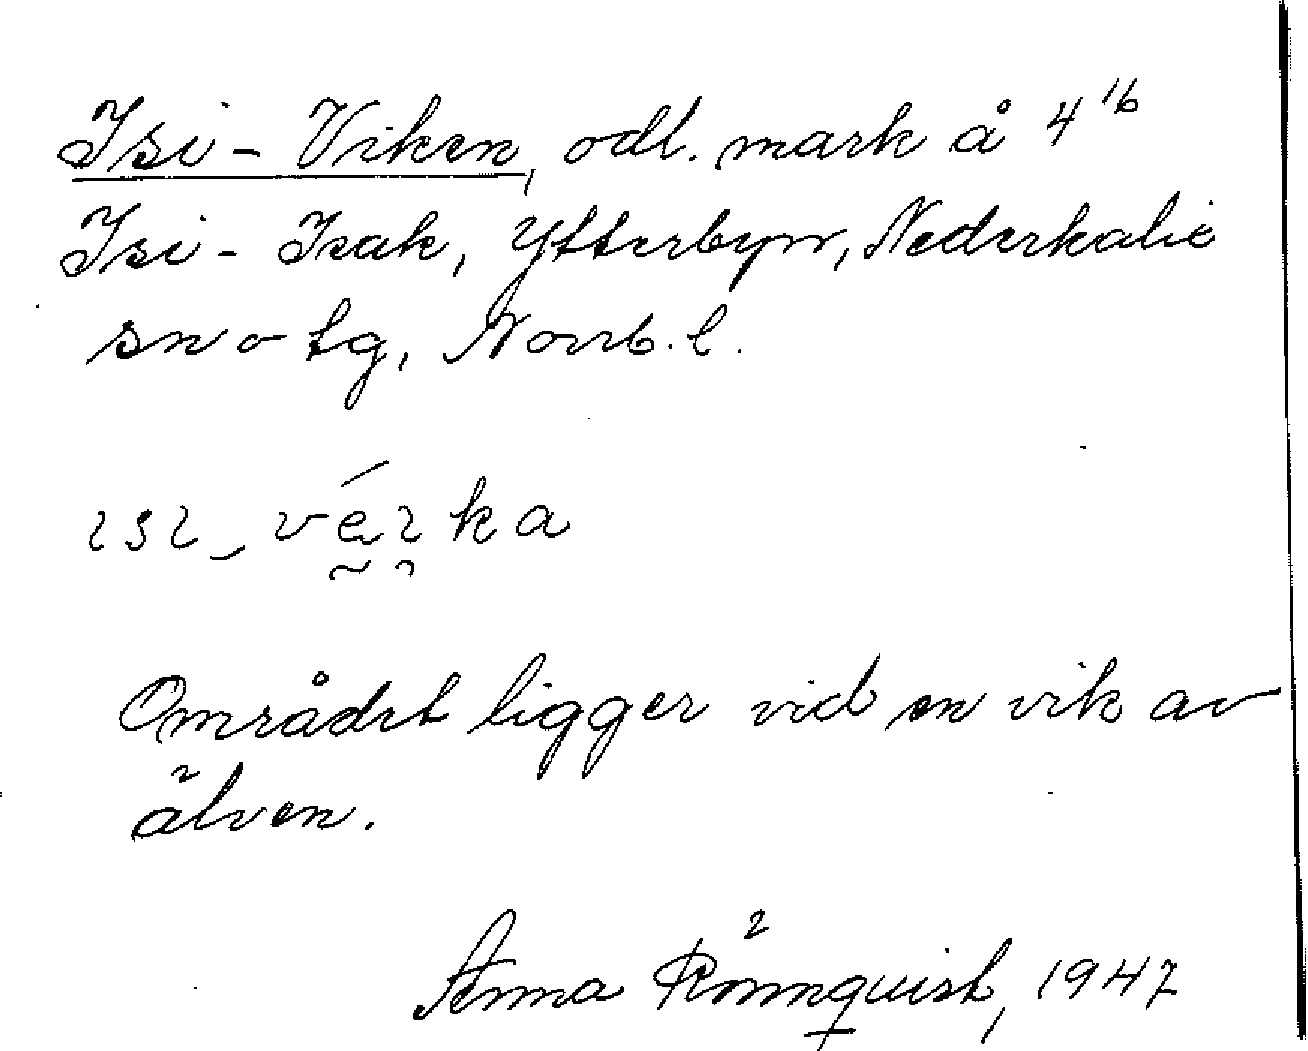 Isi-Viken, odl. mark å 4¹⁶
Isi-Isak, Ytterbyn, Nederkalix
sn o tg, Norrb. l.
ɩsɩ_véɩka
Området ligger vid en vik av
älven.
Anna Rönnquist, 1947